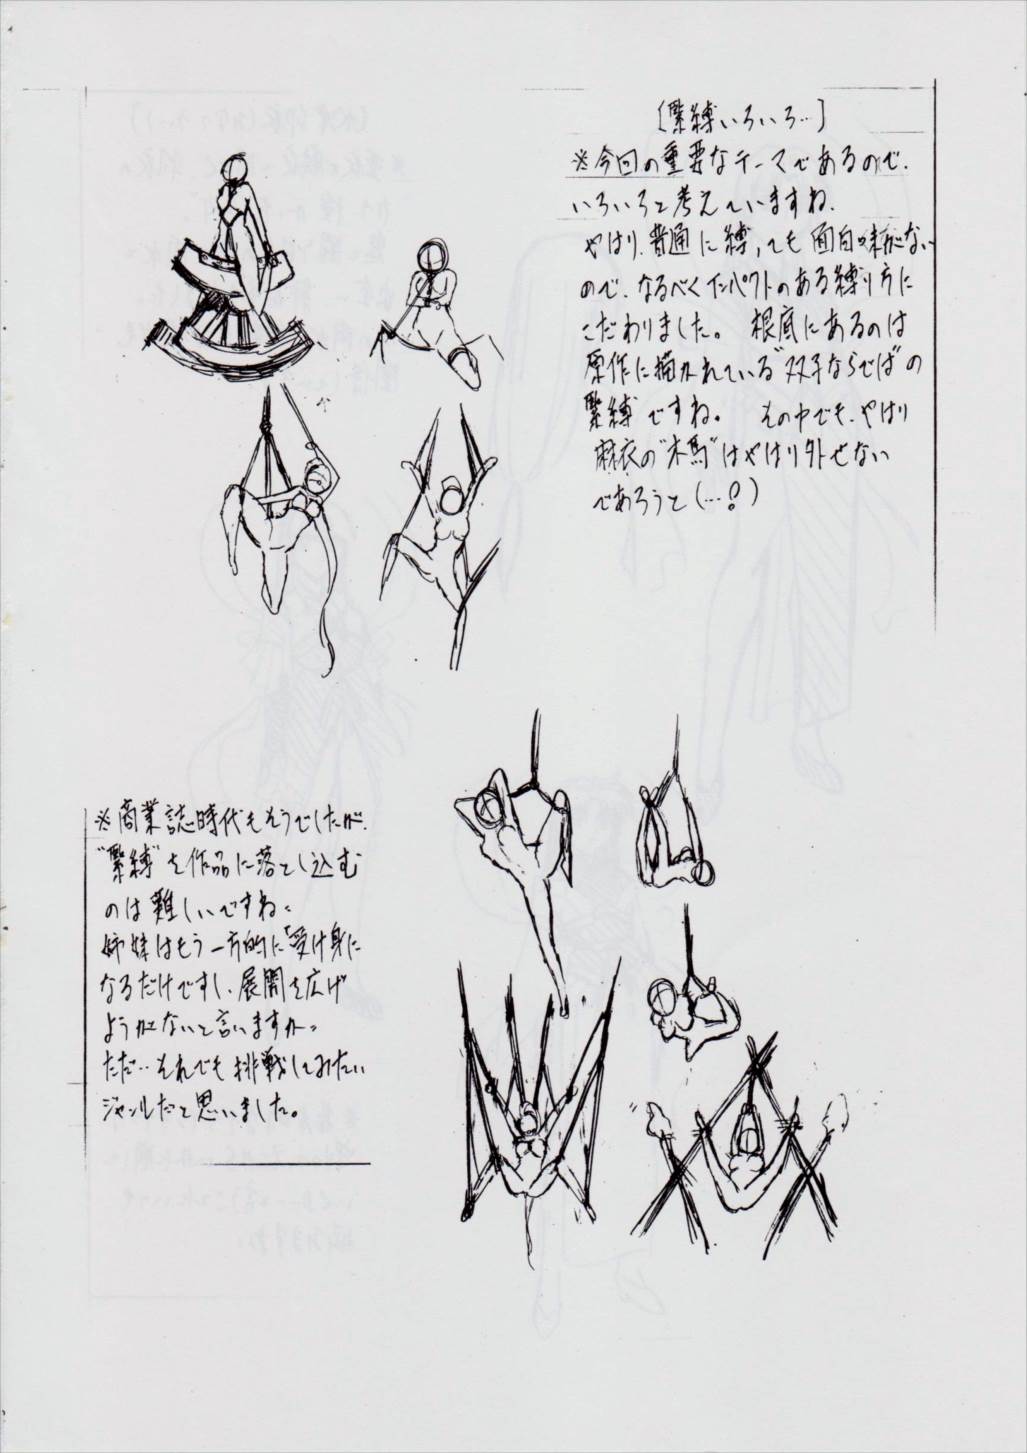 〔緊縛いろいろ…〕
※今回の重要なテーマであるので、
いろいろと考えていますね、
やはり、普通に縛っても面白味がない
ので、なるべくインパクトのある縛り方に
こだわりました。 根底にあるのは
原作に描かれている"双子ならでは"の
緊縛ですね。 その中でも、やはり
麻衣の"木馬"はやはり外せない
であろうと(…?)
※商業誌時代もそうでしたが、
"緊縛"を作品に落とし込む
のは難しいですね。
姉妹はもう一方的に受け身に
なるだけですし、展開を広げ
ようがないと言いますか。
ただ…それでも挑戦してみたい
ジャンルだと思いました。